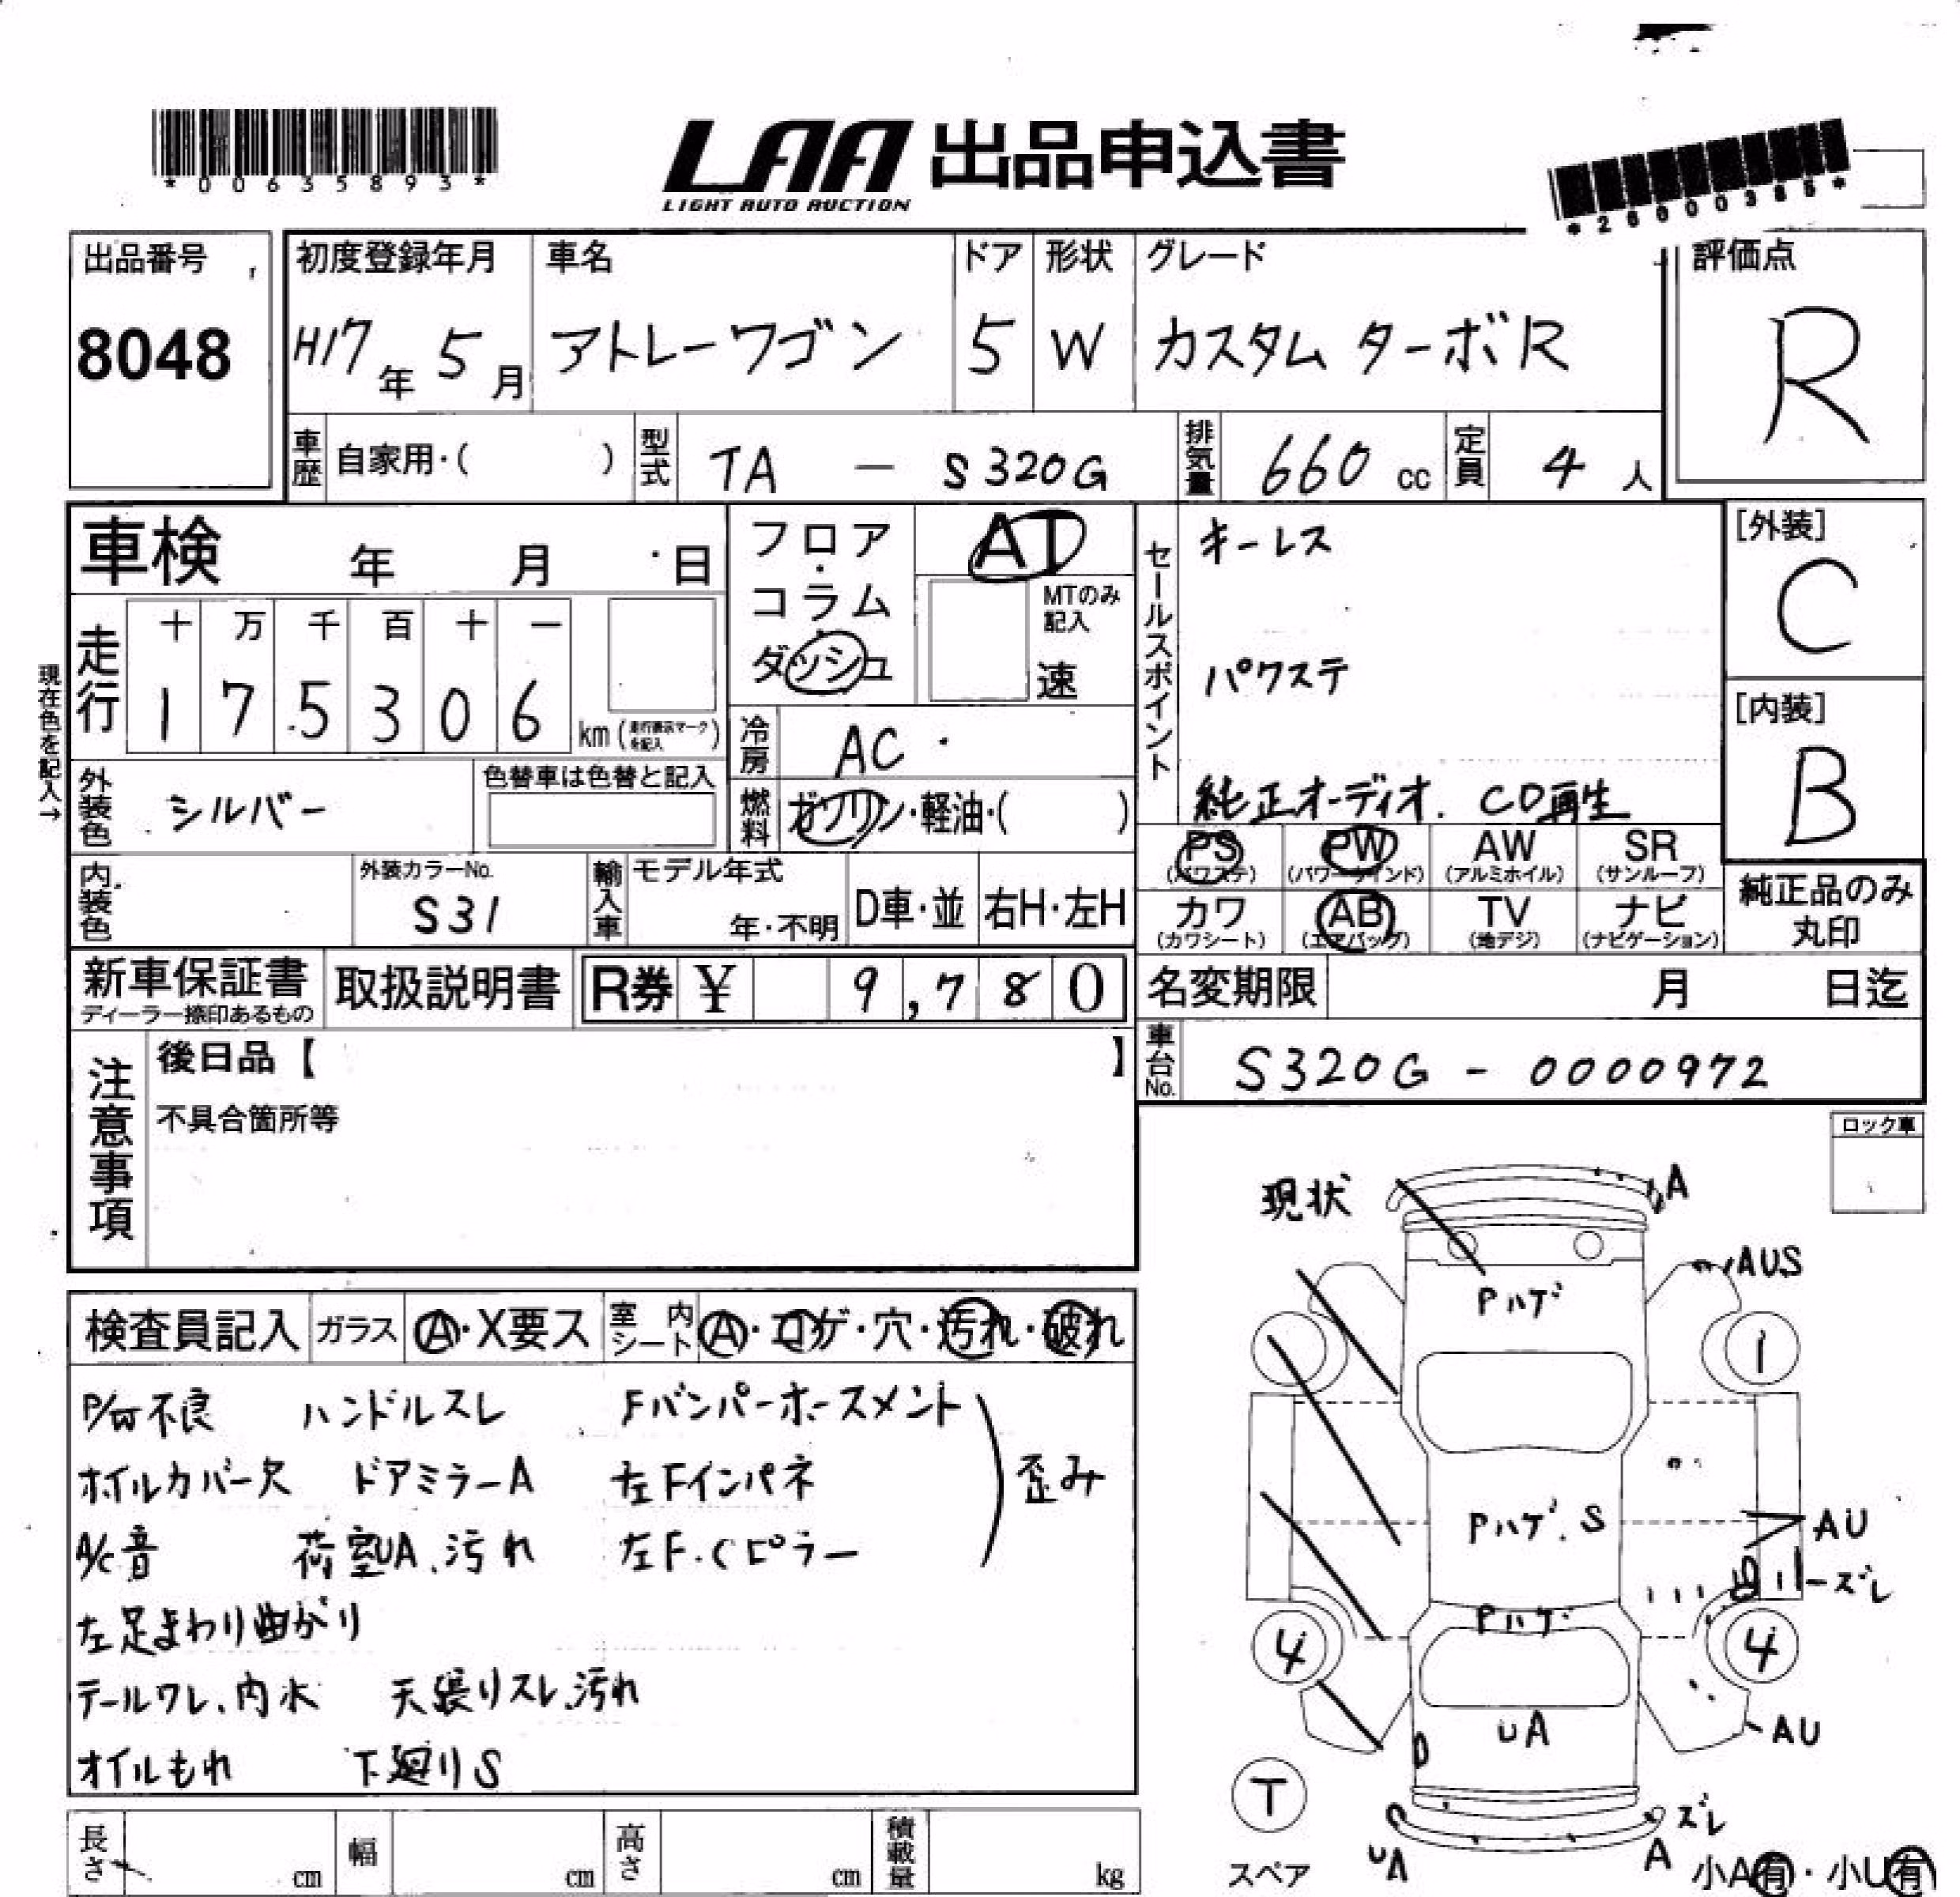 *00635893*
LAA 出品申込書
LIGHT AUTO AUCTION
*26000385*
出品番号
8048
初度登録年月
H17年 5月
車名
アトレーワゴン
ドア
5
形状
W
グレード
カスタム ターボR
評価点
R
車歴 自家用・( )
型式 TA - S320G
排気量 660 cc
定員 4 人
車検 年 月 日
フロア・コラム・ダッシュ
AT
MTのみ記入
速
セールスポイント
キーレス
パワステ
純正オーディオ. CD再生
[外装]
C
[内装]
B
現在色を記入→
走行
十 万 千 百 十 一
1 7 5 3 0 6 km (走行表示マークを記入)
冷房 AC
燃料 ガソリン・軽油・( )
外装色 シルバー
色替車は色替と記入
内装色
外装カラーNo.
S31
輸入車
モデル年式
年・不明
D車・並
右H・左H
PS (パワステ)
PW (パワーウィンド)
AW (アルミホイル)
SR (サンルーフ)
カワ (カワシート)
AB (エアバッグ)
TV (地デジ)
ナビ (ナビゲーション)
純正品のみ丸印
新車保証書
ディーラー捺印あるもの
取扱説明書
R券 ¥ 9,780
名変期限 月 日迄
車台No. S320G - 0000972
注意事項
後日品【 】
不具合箇所等
ロック車
検査員記入
ガラス A・X要ス
室内シート A・コゲ・穴・汚れ・破れ
P/W不良 ハンドルスレ Fバンパーホースメント
ホイルカバー欠 ドアミラーA 左Fインパネ 歪み
A/C音 荷室UA、汚れ 左F.Cピラー
左足まわり曲がり
テールワレ、内水 天張りスレ、汚れ
オイルもれ 下廻りS
現状
A
AUS
Pハゲ
1
Pハゲ.S
AU
ズレ
Pハゲ
4
4
UA
AU
T
スペア
ズレ
UA
A
小A有・小U有
長さ cm
幅 cm
高さ cm
積載量 kg